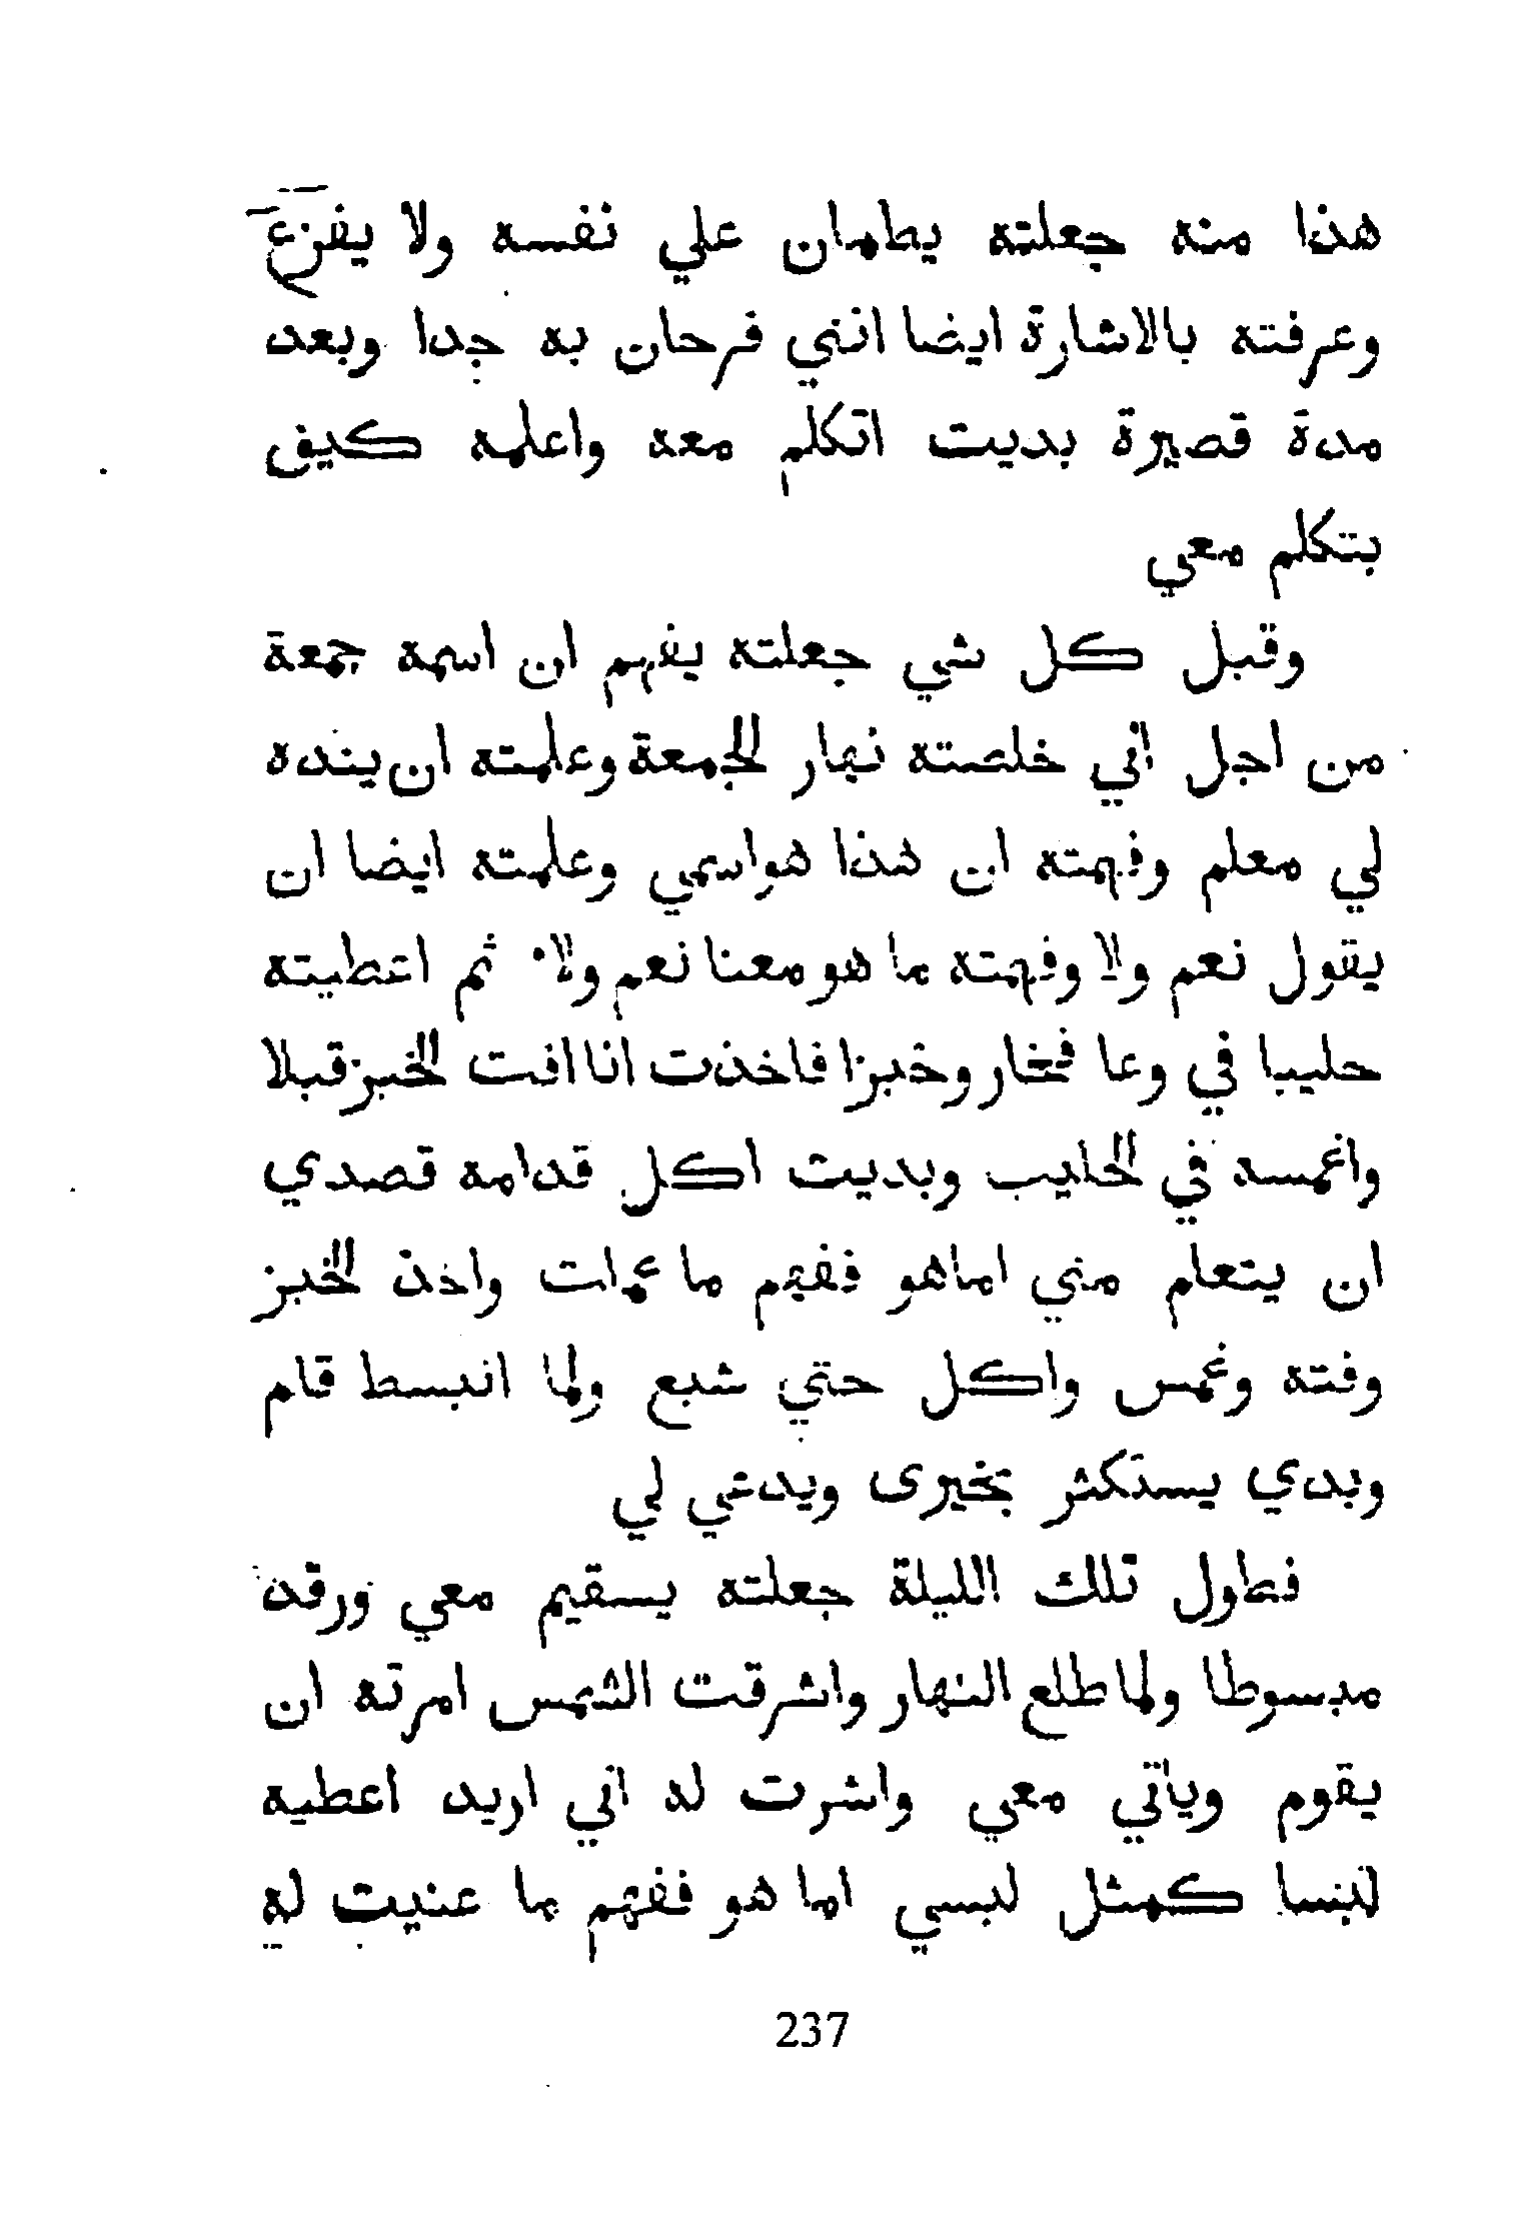 هذا منه جعلته يطمان علي نفسه ولا يفزع
وعرفته بالاشارة ايضا انني فرحان به جدا وبعد
مدة قصيرة بديت اتكلم معه واعلمه كيف
بتكلم معي
وقبل كل شي جعلته يفهم ان اسمه جمعة
من اجل اني خلصته نهار الجمعة وعلمته ان ينده
لي معلم وفهمته ان هذا هو اسمي وعلمته ايضا ان
يقول نعم ولا وفهمته ما هو معنا نعم ولا٠ ثم اعطيته
حليبا في وعا فخار وخبزا فاخذت انا افت الخبز قبلا
واغمسه في الحليب وبديت اكل قدامه قصدي
ان يتعلم مني اما هو ففهم ما عملت واخذ الخبز
وفته وغمس واكل حتي شبع ولما انبسط قام
وبدي يستكثر بخيرى ويدعي لي
فطول تلك الليلة جعلته يسقيم معي ورقد
مبسوطا ولما طلع النهار واشرقت الشمس امرته ان
يقوم وياتي معي واشرت له اني اريد اعطيه
لبسا كمثل لبسي اما هو ففهم ما عنيت له
237